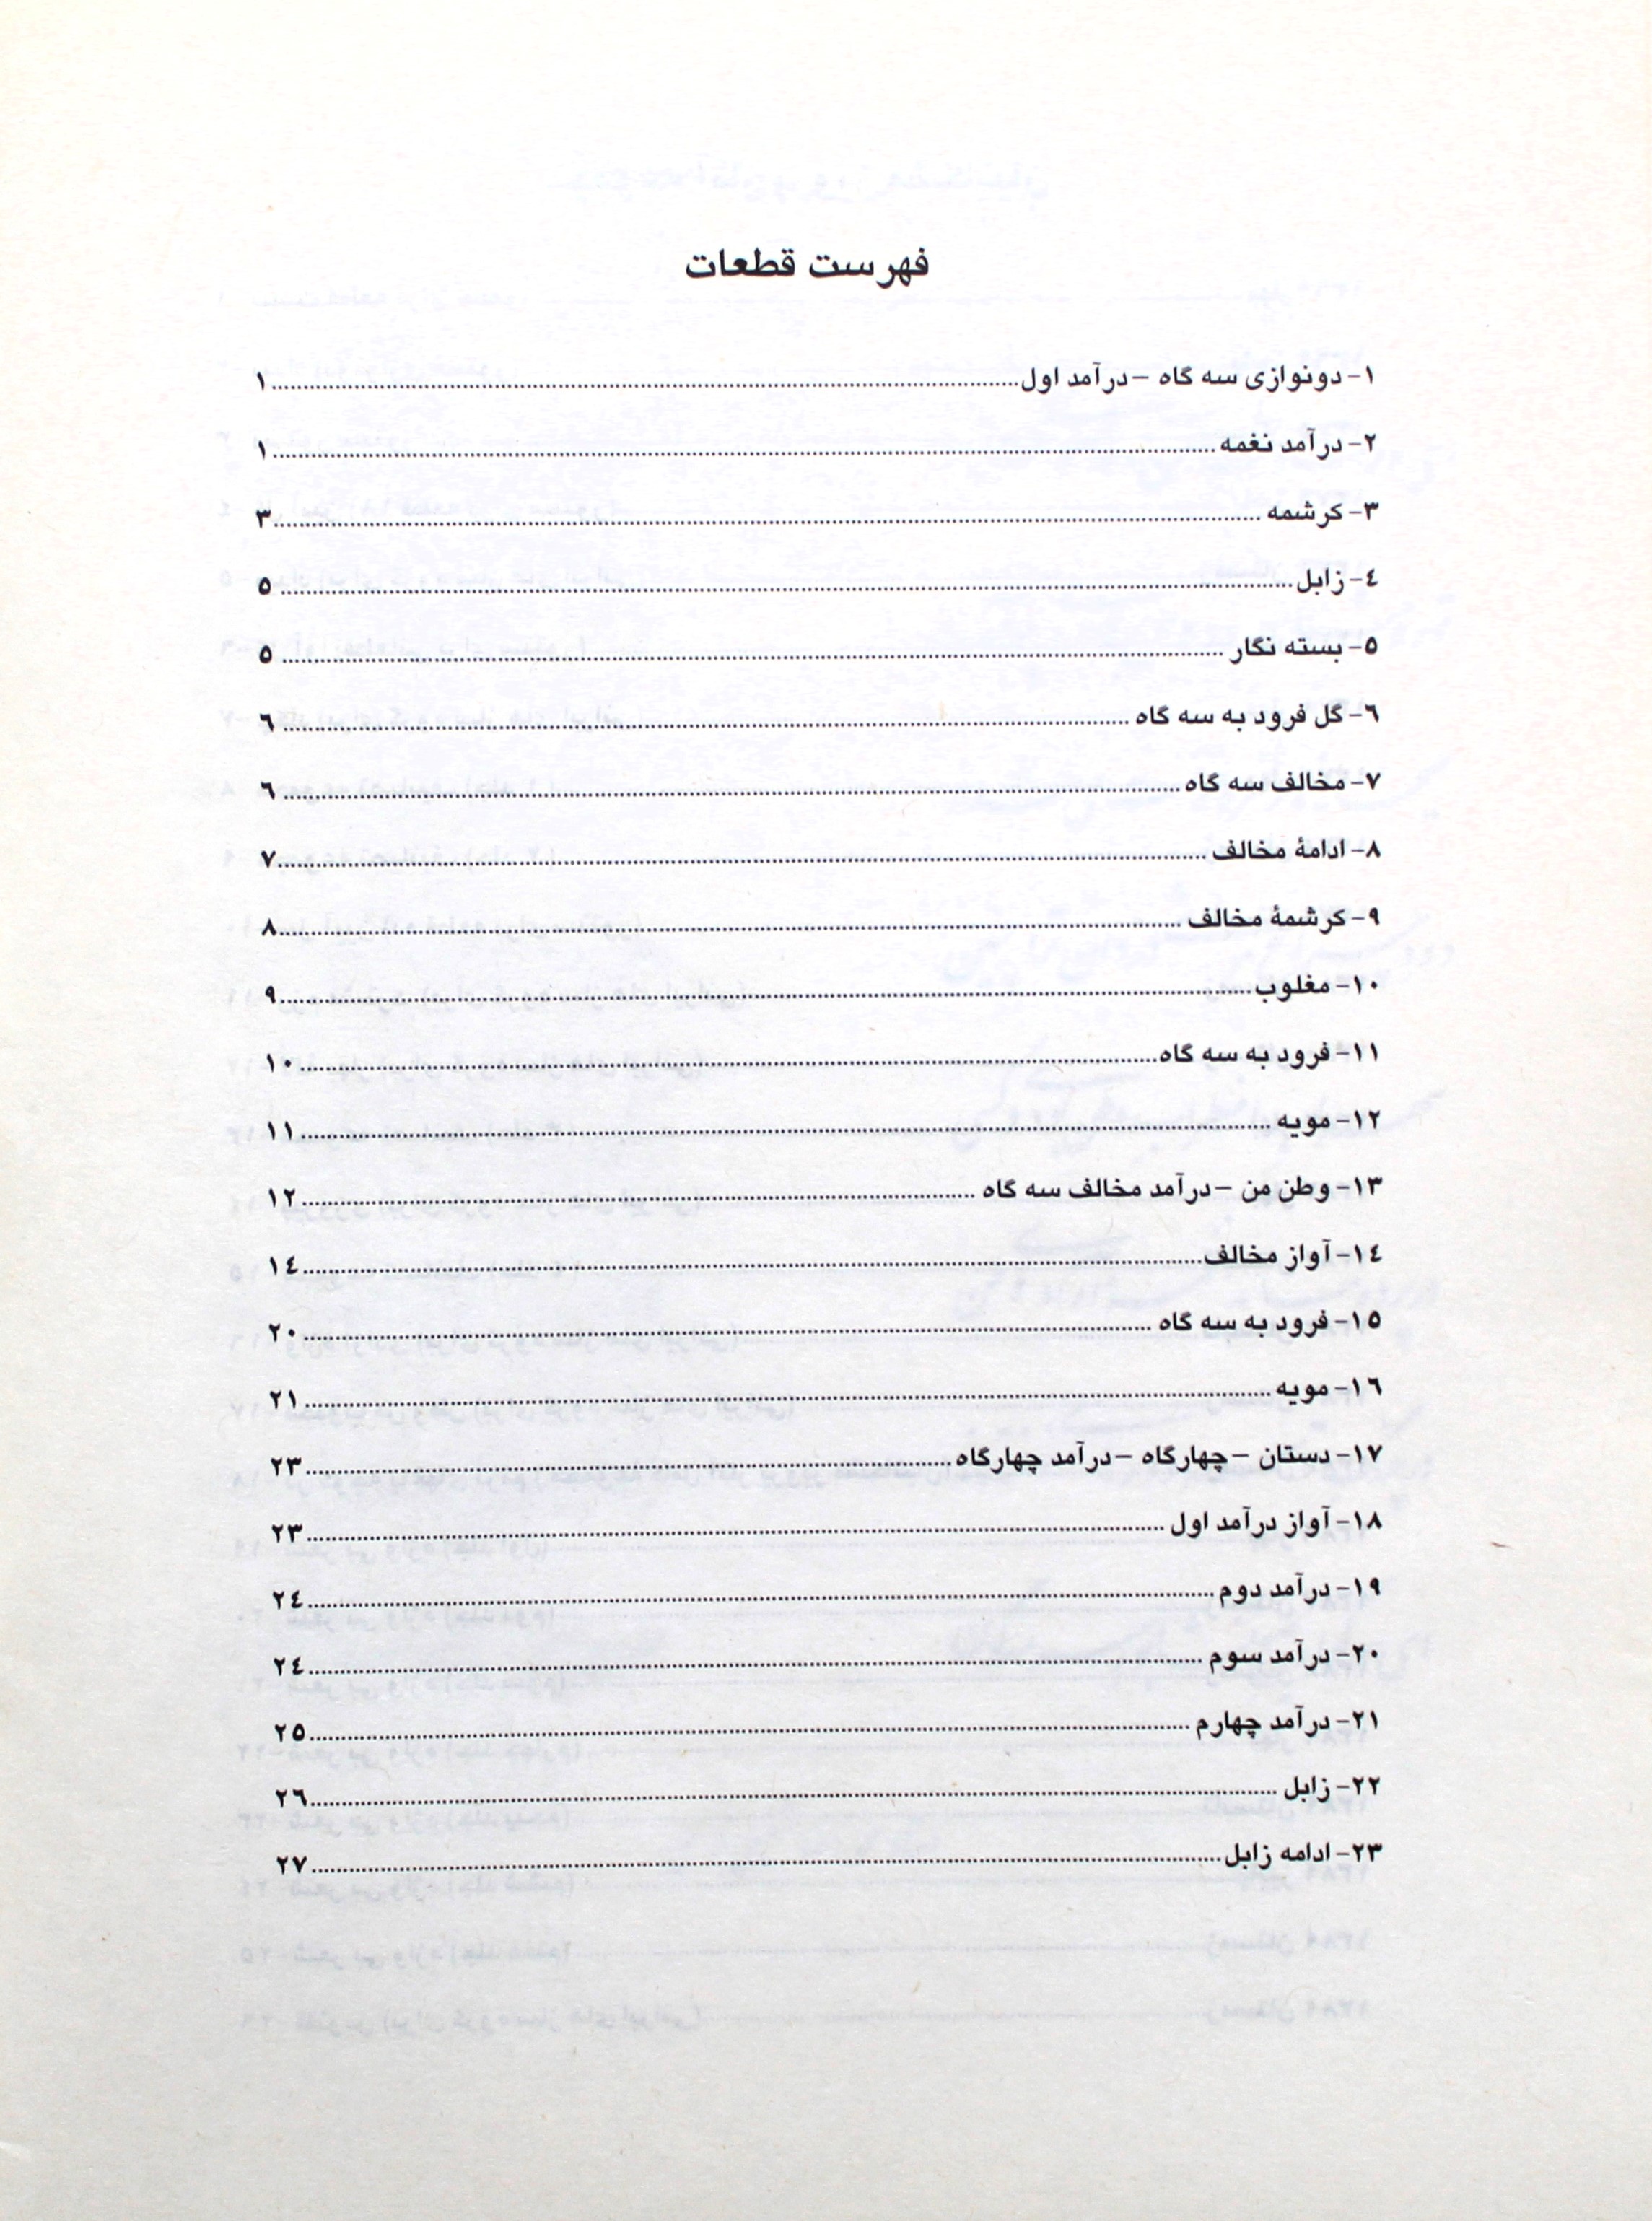 فهرست قطعات
۱- دونوازی سه گاه –درآمد اول........۱
۲- درآمد نغمه........۱
۳- کرشمه........۳
٤- زابل........۵
۵- بسته نگار........۵
٦- گل فرود به سه گاه........٦
۷- مخالف سه گاه........٦
۸- ادامهٔ مخالف........۷
۹- کرشمهٔ مخالف........۸
۱۰- مغلوب........۹
۱۱- فرود به سه گاه........۱۰
۱۲- مویه........۱۱
۱۳- وطن من –درآمد مخالف سه گاه........۱۲
۱٤- آواز مخالف........۱٤
۱۵- فرود به سه گاه........۲۰
۱٦- مویه........۲۱
۱۷- دستان –چهارگاه –درآمد چهارگاه........۲۳
۱۸- آواز درآمد اول........۲۳
۱۹- درآمد دوم........۲٤
۲۰- درآمد سوم........۲٤
۲۱- درآمد چهارم........۲۵
۲۲- زابل........۲٦
۲۳- ادامه زابل........۲۷